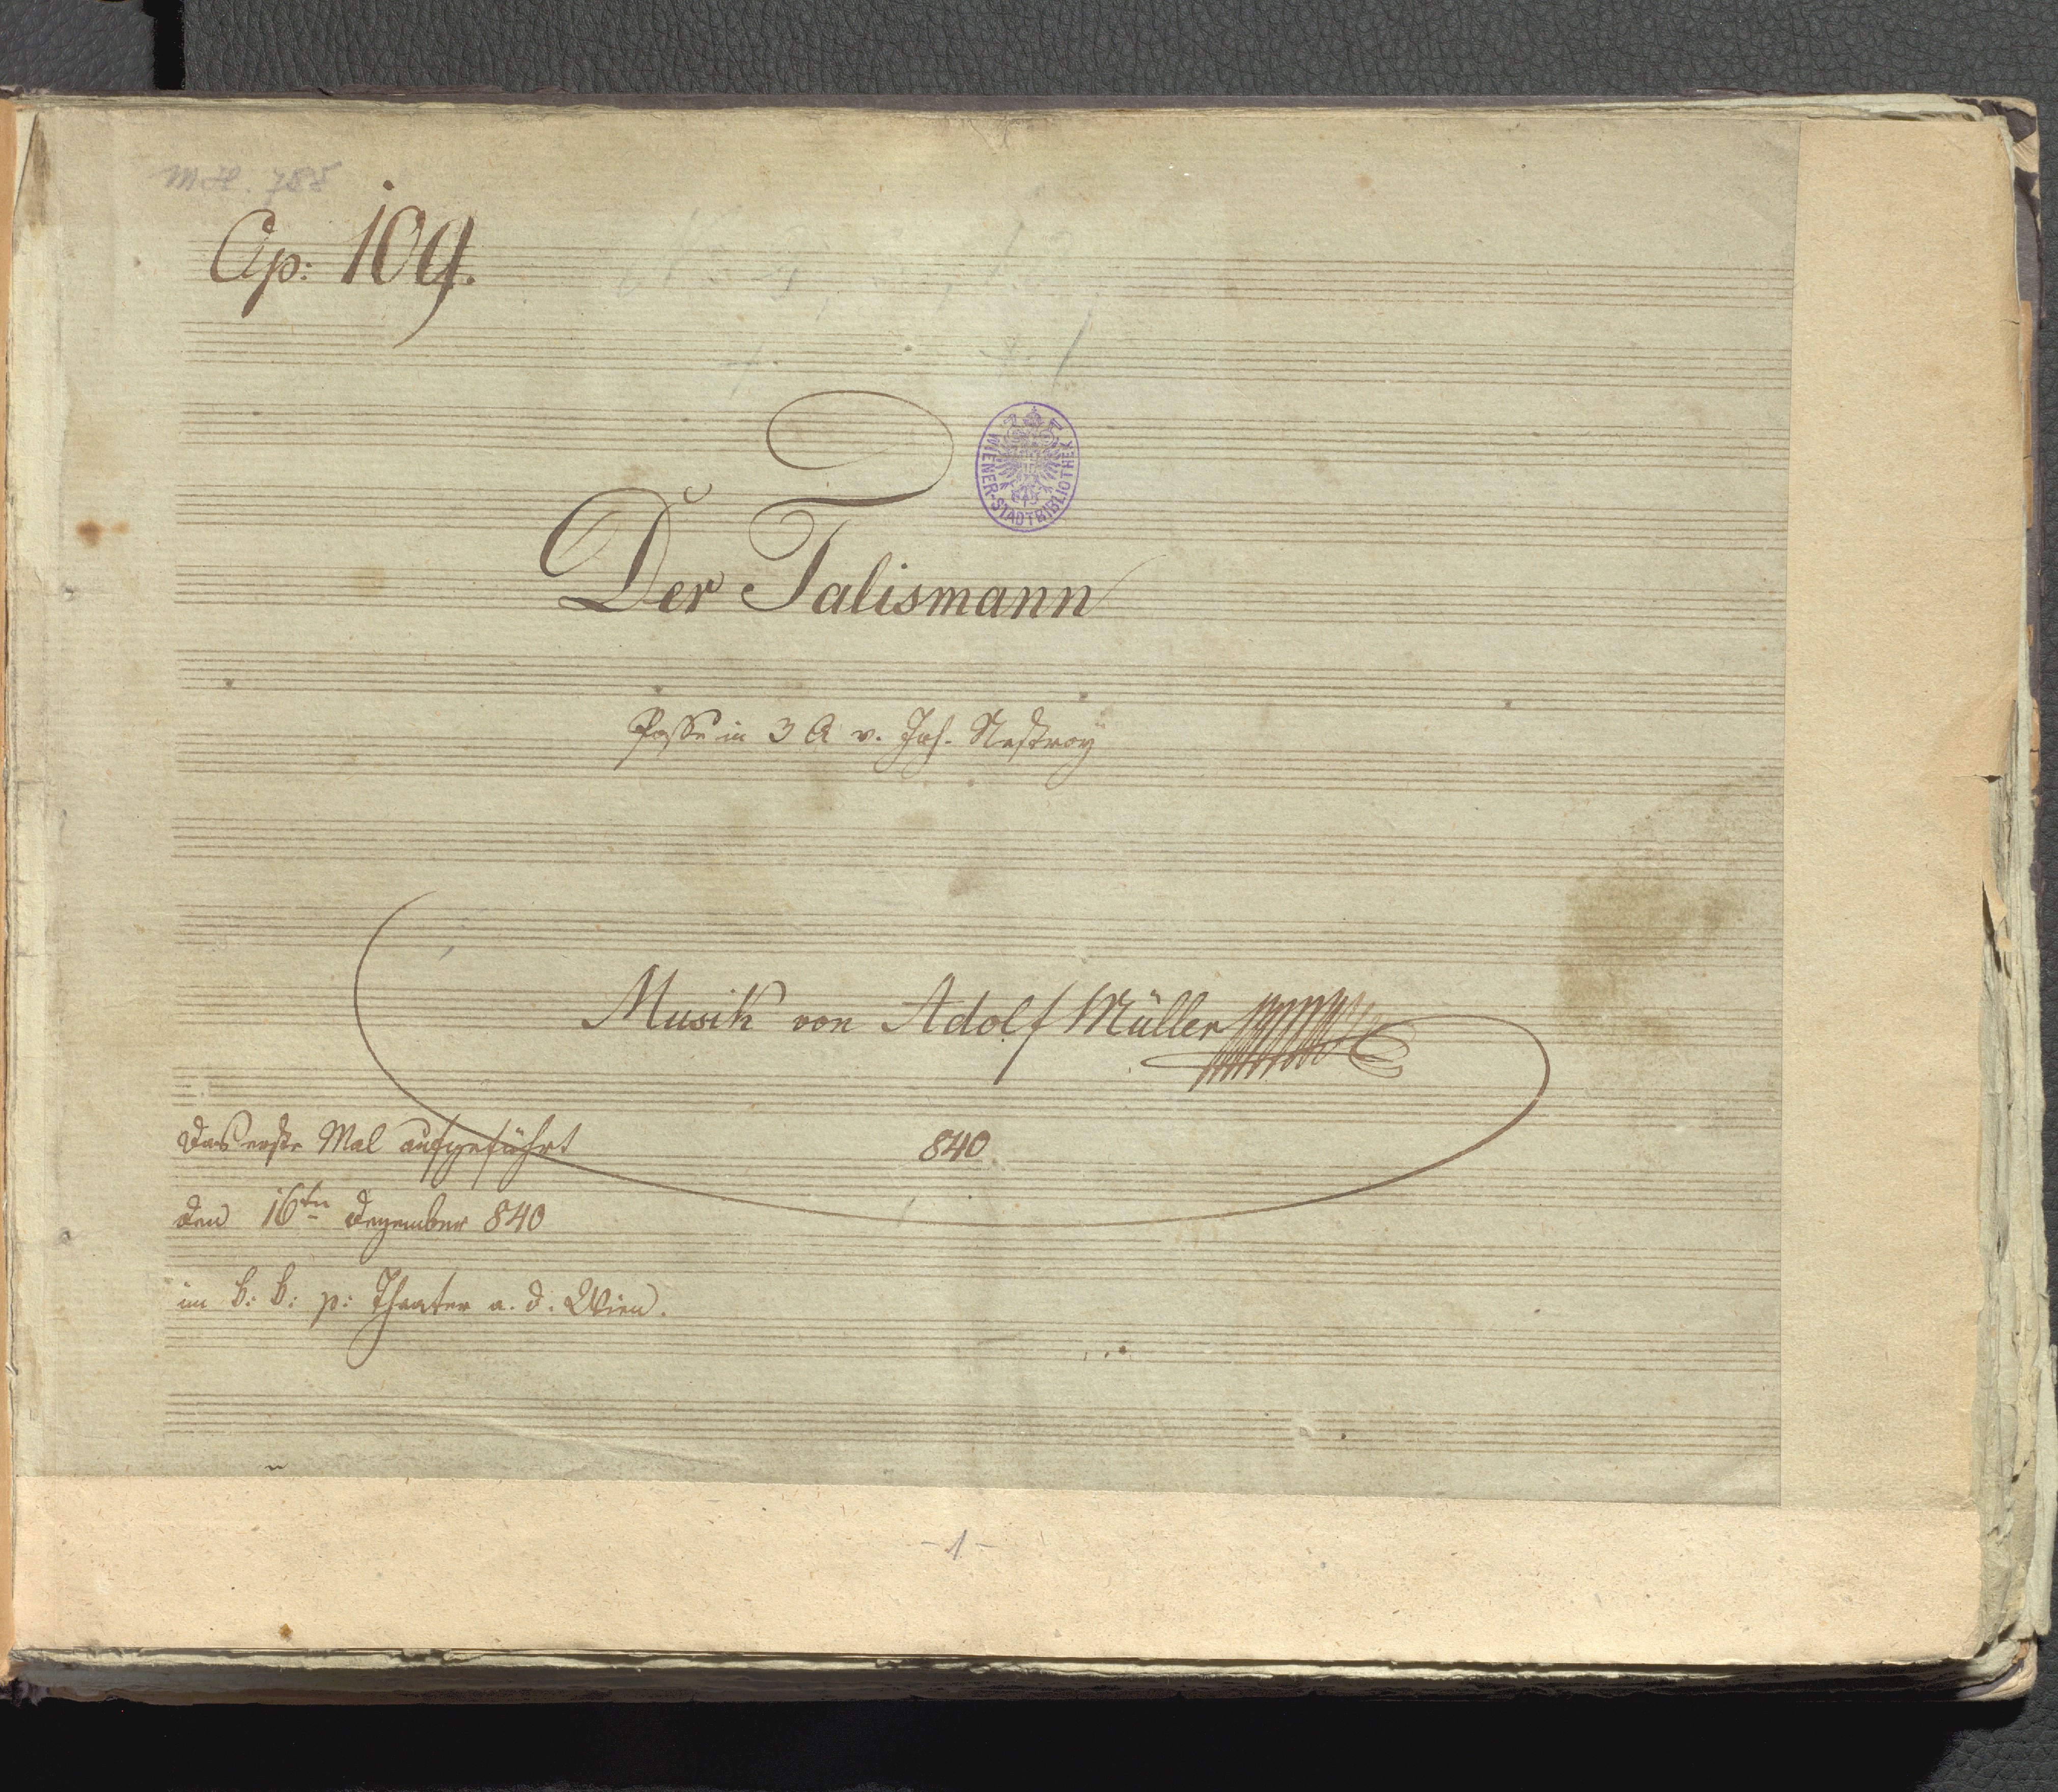 MH. 788
Op: 109.
WIENER-STADTBIBLIOTHEK
Der Talismann
Posse in 3 A v. Joh. Nestroy
Musik von Adolf Müller
840
das erste Mal aufgeführt
den 16ten Dezember 840
im k: k: p: Theater a. d. Wien.
- 1 -